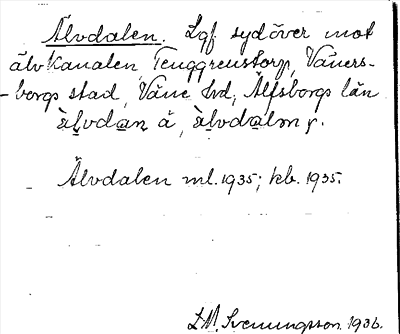 Älvdalen. Lgf sydöver mot
älvkanalen, Tenggrenstorp, Väners-
-borgs stad, Väne hd, Älfsborgs län
älvdan å, älvdalm
Älvdalen ml. 1935; kb. 1935.
L.M. Svenungsson. 1936.